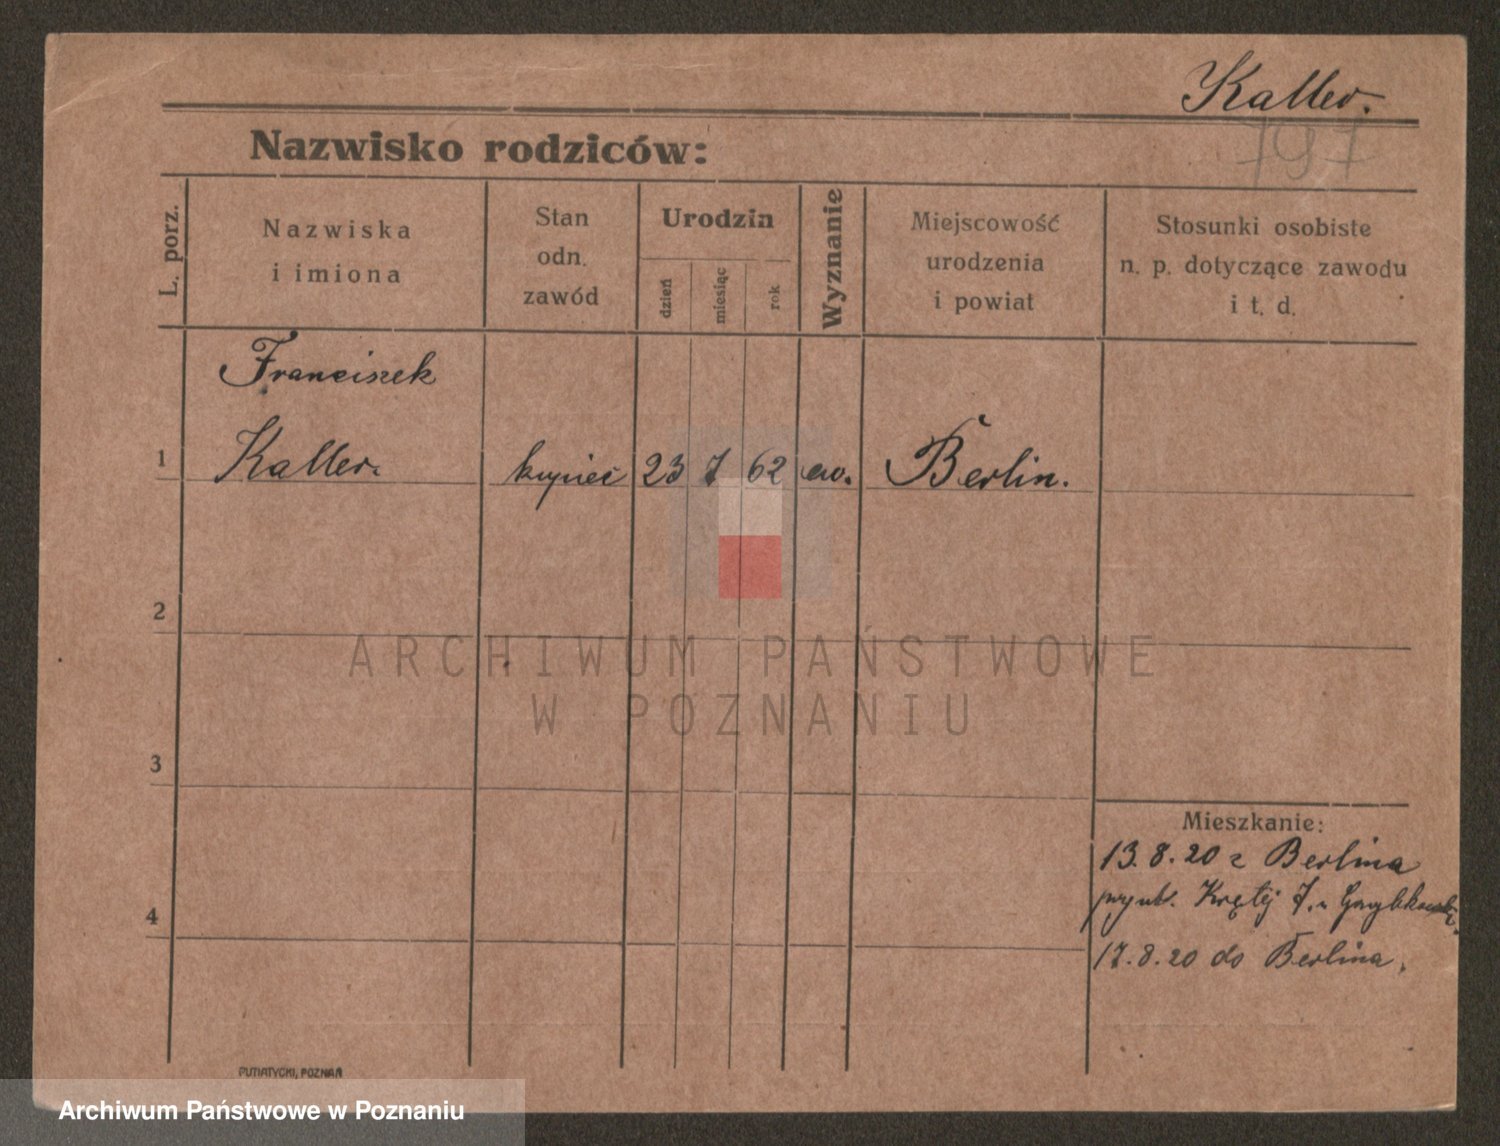 Kaller.
797
Nazwisko rodziców:
L. porz.
Nazwiska
i imiona
Stan
odn.
zawód
Urodzin
dzień
miesiąc
rok
Wyznanie
Miejscowość
urodzenia
i powiat
Stosunki osobiste
n. p. dotyczące zawodu
i t. d.
Franciszek
1 Kaller. kupiec 23 7 62 ew. Berlin.
2
ARCHIWUM PAŃSTWOWE
W POZNANIU
3
Mieszkanie:
13.8.20 z Berlina
4
Krętej 7.
17.8.20 do Berlina.
PUTIATYCKI, POZNAŃ
Archiwum Państwowe w Poznaniu